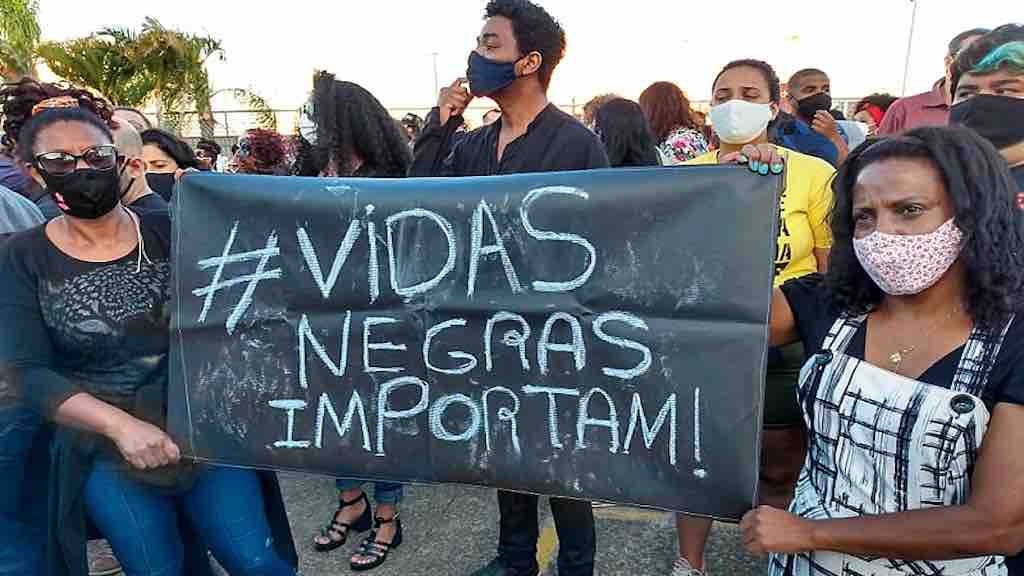 #VIDAS
NEGRAS
IMPORTAM!